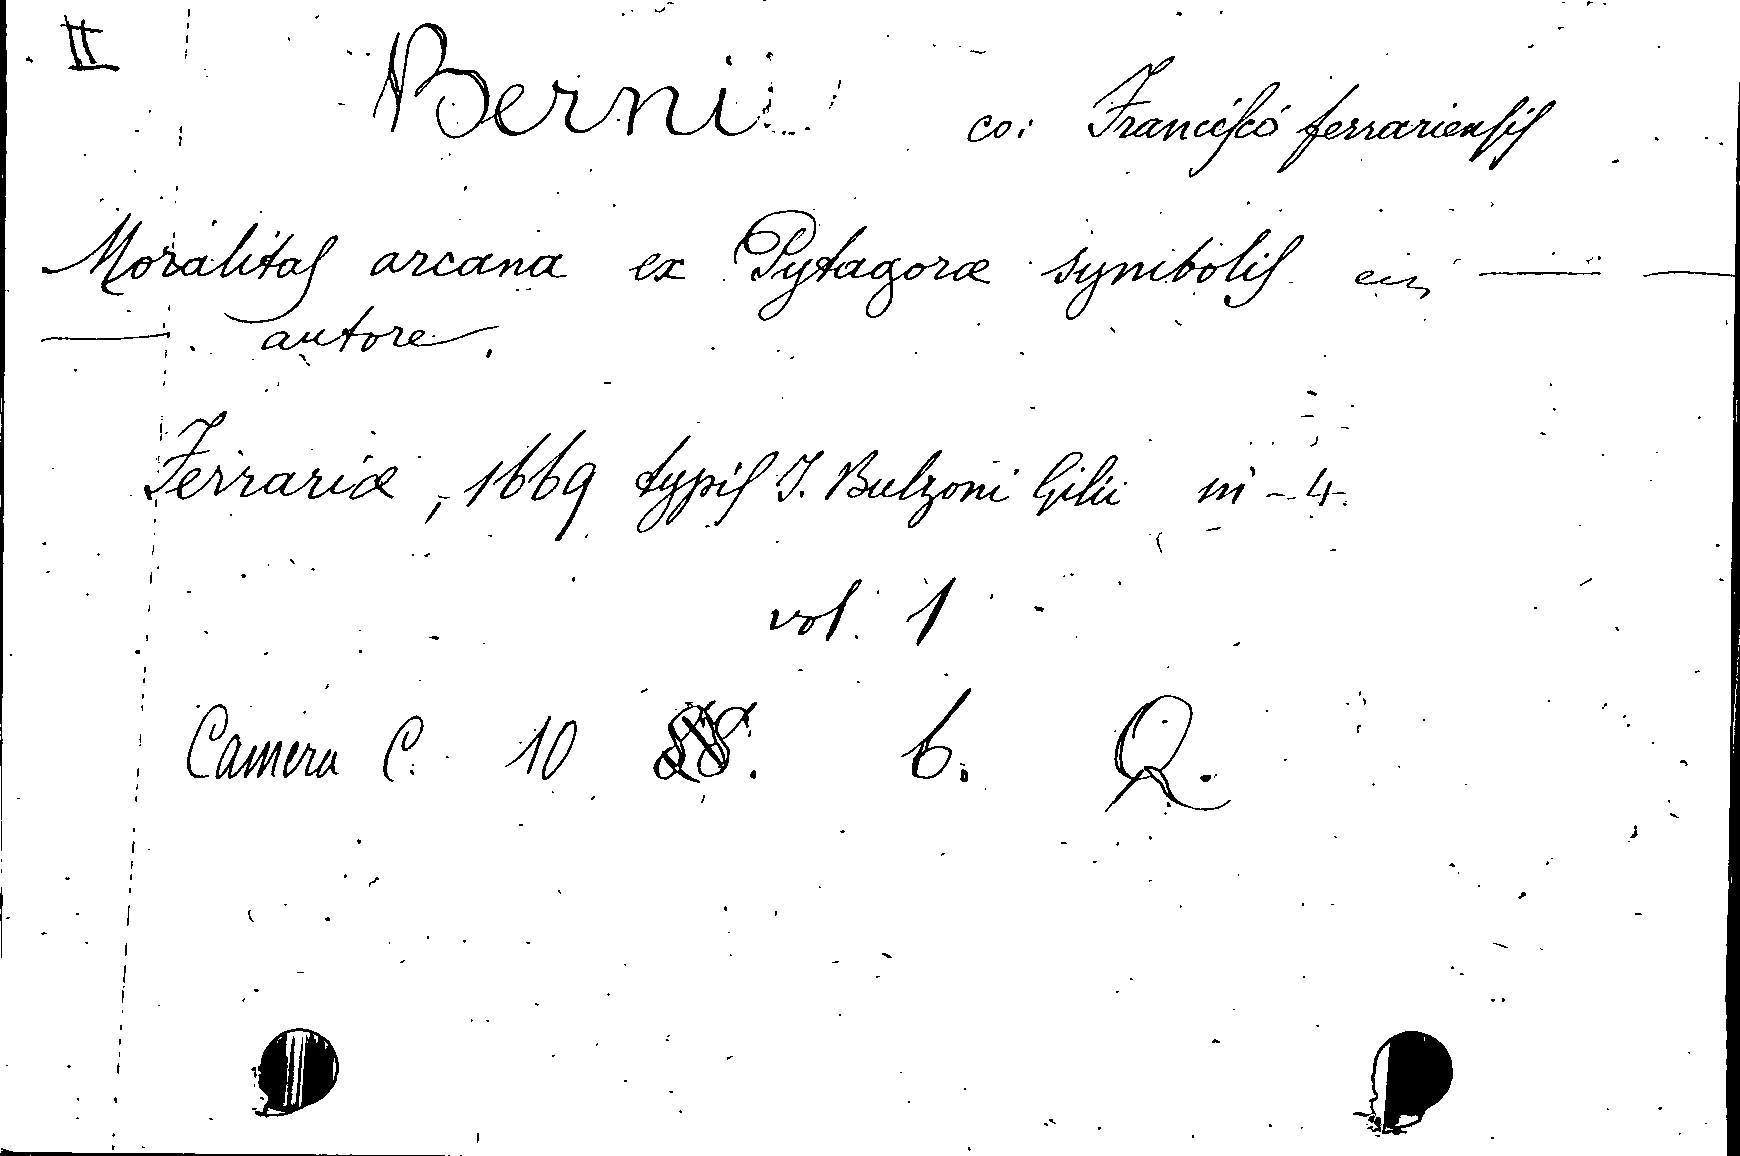 II
Berni co: Francisco ferrariensis
Moralitas arcana ex Pytagoræ symbolis
autore.
Ferrariæ, 1669 typis J. Bulzoni Gilii in-4.
vol. 1
Camera C. 10 6. Q.